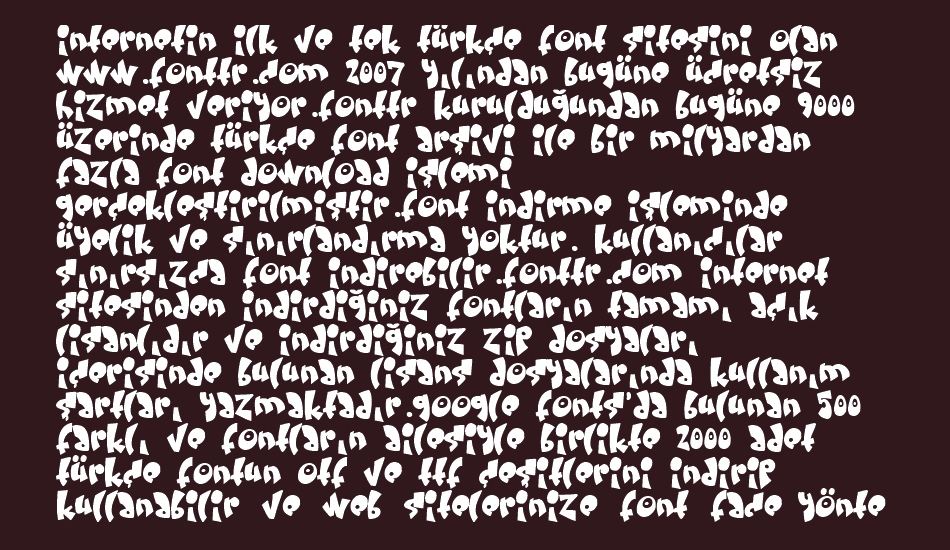 internetin ilk ve tek türkçe font sitesini olan
www.fonttr.com 2007 yılından bugüne ücretsiz
hizmet veriyor.fonttr kurulduğundan bugüne 9000
üzerinde türkçe font arşivi ile bir milyardan
fazla font download işlemi
gerçekleştirilmiştir.font indirme işleminde
üyelik ve sınırlandırma yoktur. kullanıcılar
sınırsızca font indirebilir.fonttr.com internet
sitesinden indirdiğiniz fontların tamamı açık
lisanlıdır ve indirdiğiniz zip dosyaları
içerisinde bulunan lisans dosyalarında kullanım
şartları yazmaktadır.google fonts'da bulunan 500
farklı ve fontların ailesiyle birlikte 2000 adet
türkçe fontun otf ve ttf çeşitlerini indirip
kullanabilir ve web sitelerinize font face yönte